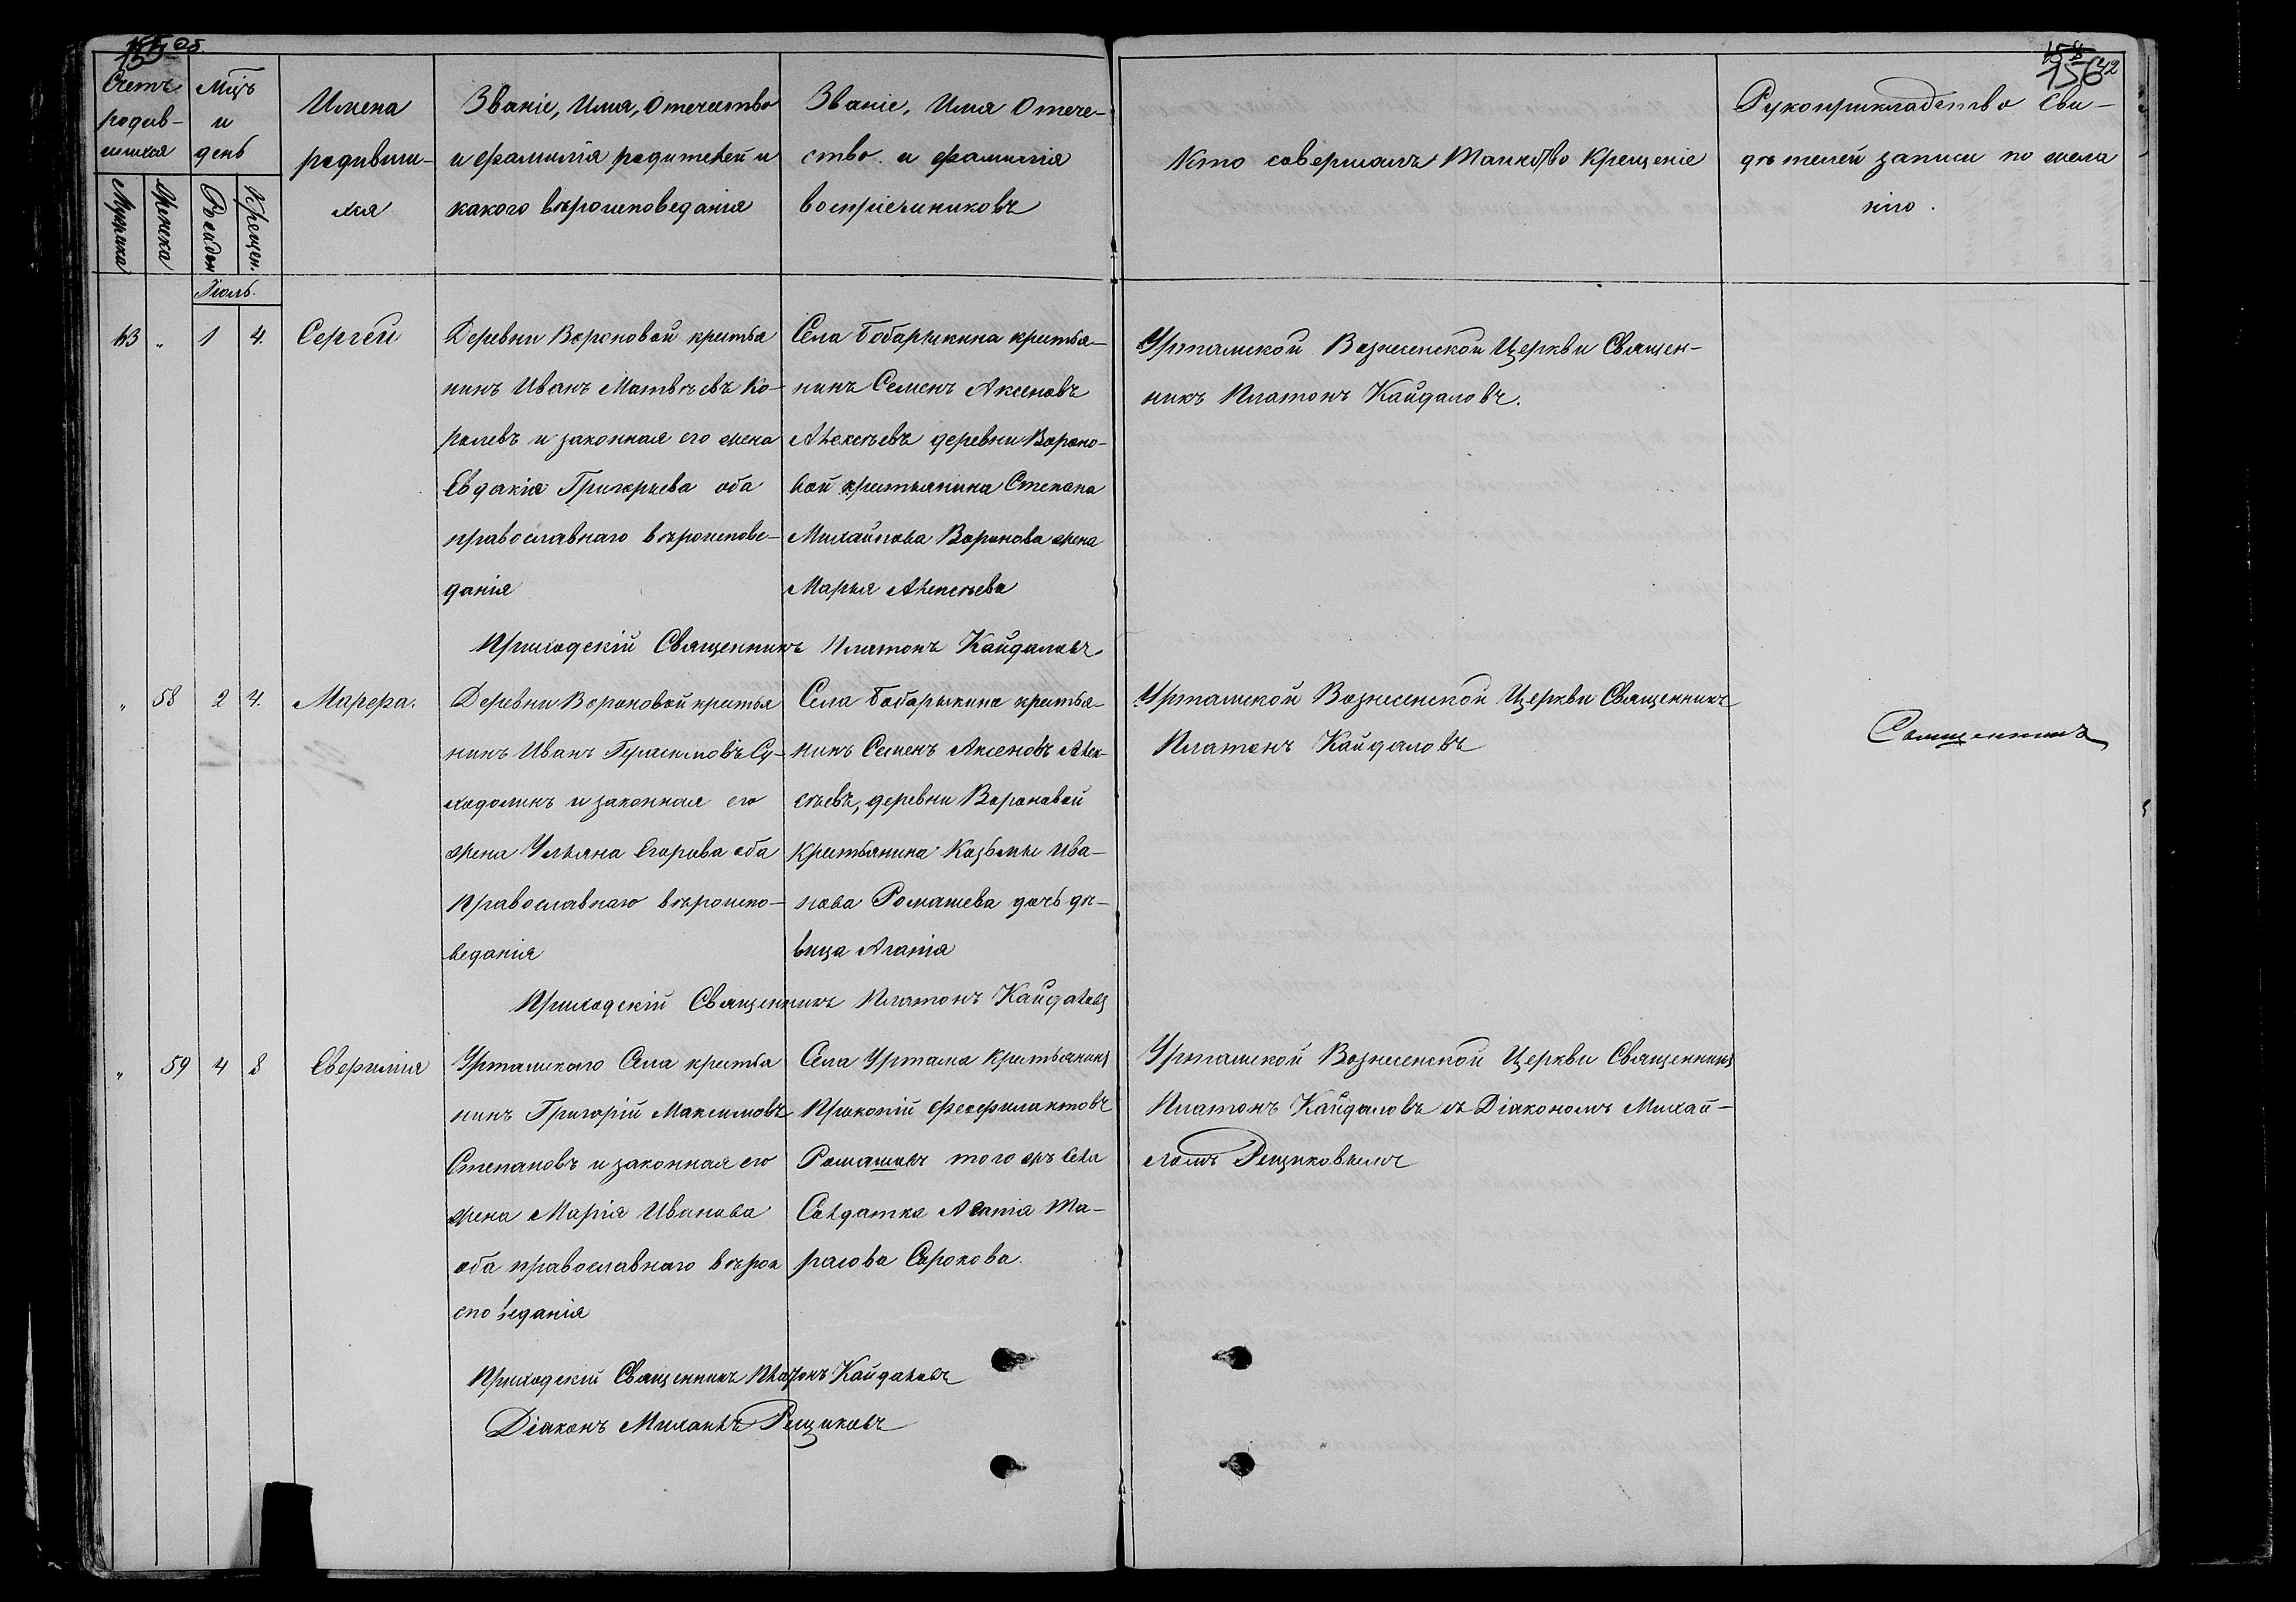 об.
156
42
Счетъ
родив-
шихся
Мужска
Женска
Мцъ
и
день
Рожден
Крещен.
Имена
родивши-
хся
Званіе, Имя, Отчество
и фамилія родителей и
какого вѣроисповеданія
Званіе, Имя Отече-
ство и фамилія
воспріемниковъ
Кто совершалъ Таинство Крещеніе
Рукоприкладство Сви-
дѣтелей записи по жела
нію.
Іюль.
63 " 1 4. Сергей
Деревни Вороновой крестья
нинъ Иванъ Матвѣевъ Ко-
ролевъ и законная его жена
Евдакія Григорьева оба
православнаго вѣроиспове-
данія
Села Бабарыкина крестья-
нинъ Семенъ Аксеновъ
Алексѣевъ деревни Вороно-
вой крестьянина Степана
Михайлова Воронова жена
Марья Алексѣева
Уртамской Вознесенской Церкви Священ-
никъ Платонъ Кайдаловъ.
Приходскій Священникъ Платонъ Кайдаловъ
" 58 2 4. Марѳра.
Деревни Вороновой крестья
нинъ Иванъ Герасимовъ Су-
ходолинъ и законная его
жена Ульяна Егорова оба
православнаго вѣроиспо-
веданія
Села Бабарыкина крестья-
нинъ Семенъ Аксеновъ Алек-
сѣевъ, деревни Вороновой
крестьянина Козьмы Ива-
нова Ромашева дочь дѣ-
вица Агапія
Уртамской Вознесенской Церкви Священникъ
Платонъ Кайдаловъ
Священникъ
Приходскій Священникъ Платонъ Кайдаловъ
" 59 4 8 Евфимія
Уртамскаго Села крестья
нинъ Григорій Максимовъ
Степановъ и законная его
жена Марія Иванова
оба православнаго вѣрои
споведанія
Села Уртама Крестьянинъ
Прокопій Феофилактовъ
Ромашовъ того жъ Села
Солдатка Агапія Та-
расова Сорокова.
Уртамской Вознесенской Церкви Священникъ
Платонъ Кайдаловъ съ Діакономъ Михай-
ломъ Рещиковымъ
Приходскій Священникъ Платонъ Кайдаловъ
Діаконъ Михаилъ Рещиковъ